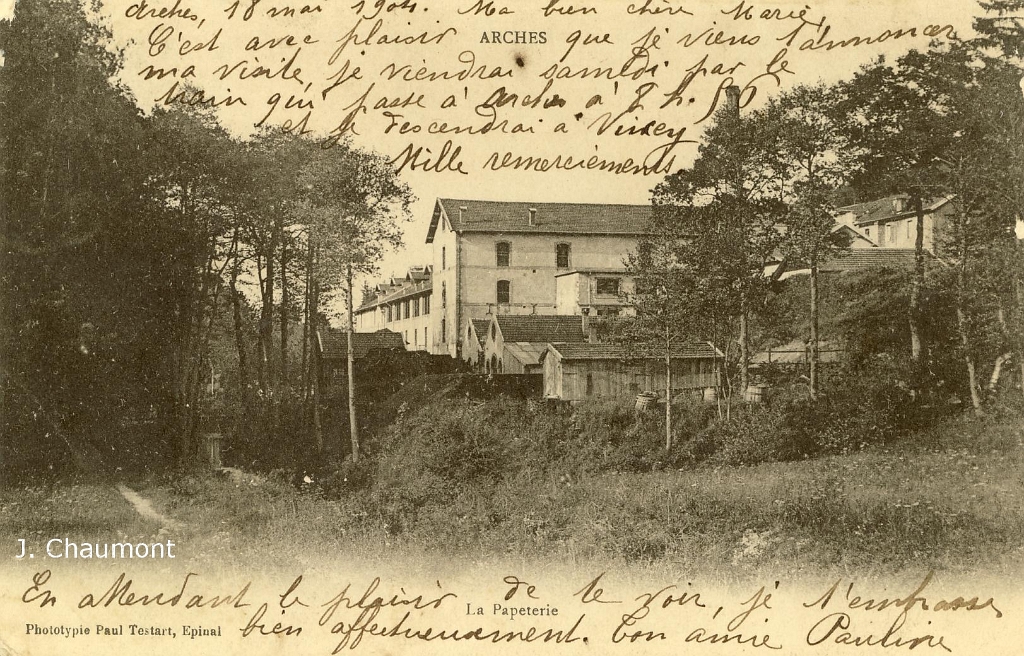 Arches, 18 mai 1904. Ma bien chère Marie,
ARCHES
C'est avec plaisir que je viens t'annoncer
ma visite, je viendrai samedi par le
train qui passe à Arches à 2 h.
et je descendrai à Vincey
Mille remerciements
J. Chaumont
En attendant le plaisir de te voir, je t'embrasse
La Papeterie
Phototypie Paul Testart, Epinal
bien affectueusement. Ton amie Pauline